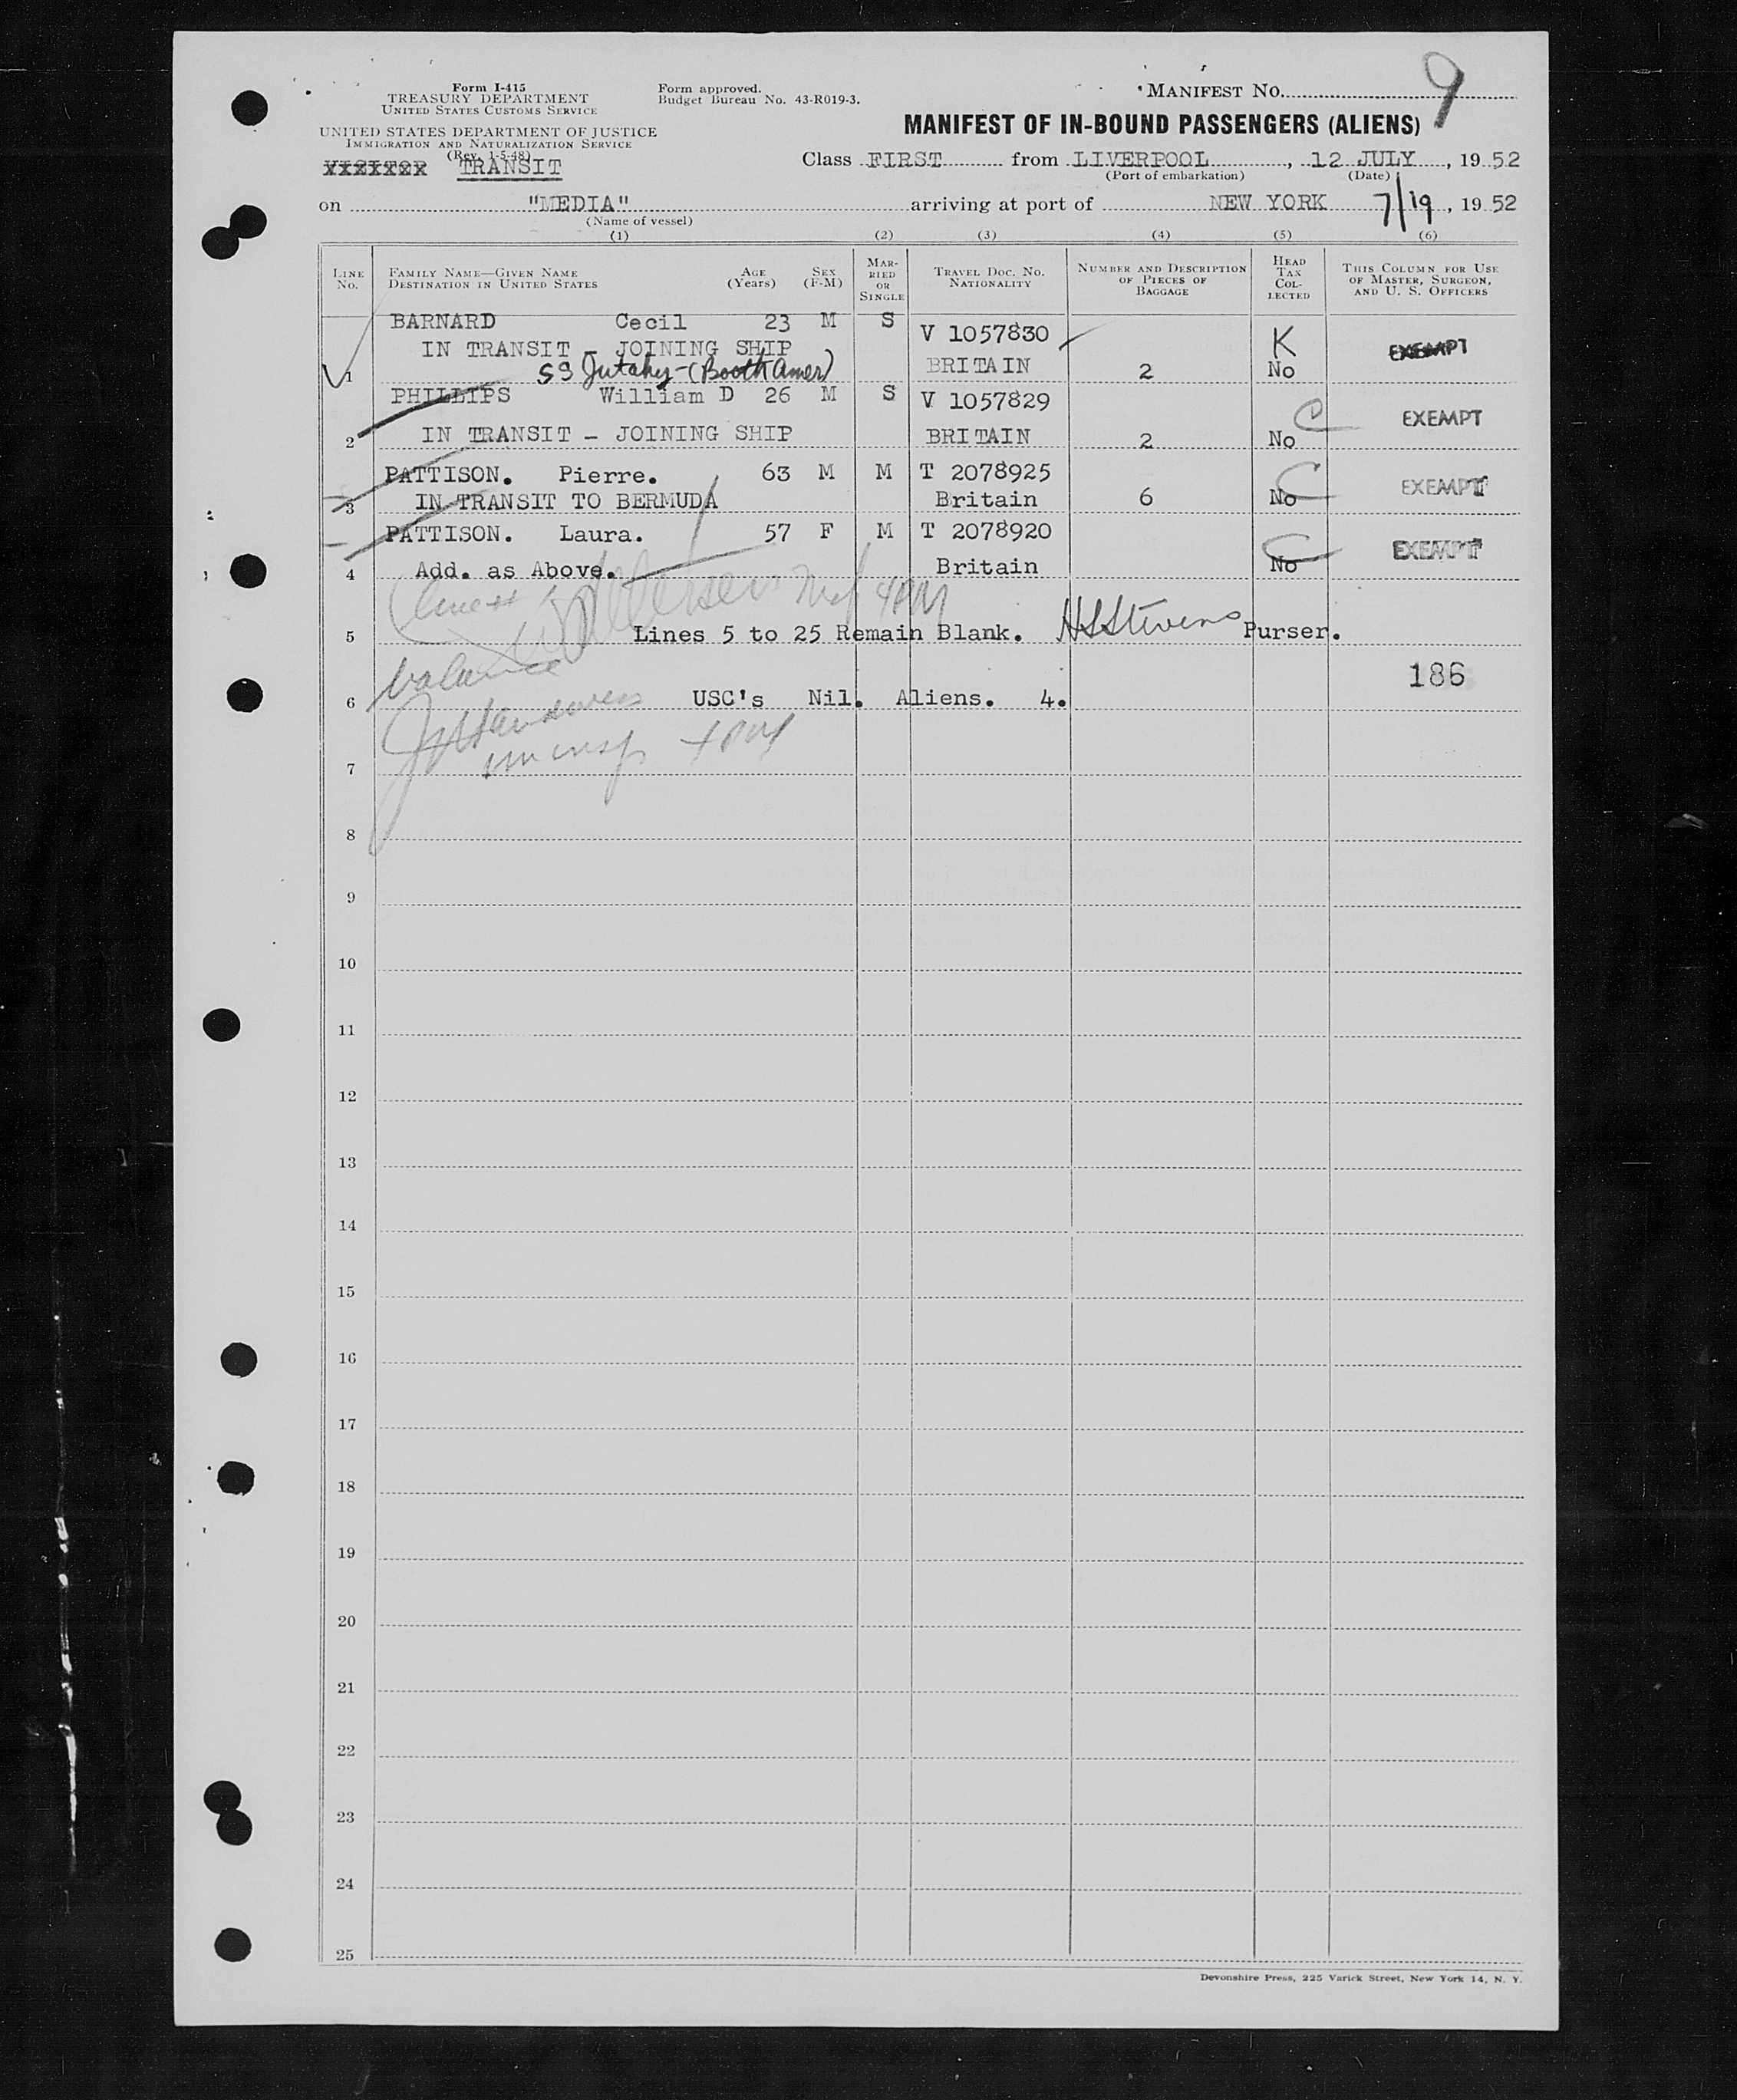 Form I-415
TREASURY DEPARTMENT
UNITED STATES CUSTOMS SERVICE
UNITED STATES DEPARTMENT OF JUSTICE
IMMIGRATION AND NATURALIZATION SERVICE
(Rev. 1-5-48)
VISITOR TRANSIT
Form approved.
Budget Bureau No. 43-R019-3.
MANIFEST NO. 9
MANIFEST OF IN-BOUND PASSENGERS (ALIENS)
Class FIRST from LIVERPOOL, 12 JULY, 1952
(Port of embarkation) (Date)
on "MEDIA" arriving at port of NEW YORK 7/19, 1952
(Name of vessel)
(1) (2) (3) (4) (5) (6)
LINE NO. FAMILY NAME—GIVEN NAME DESTINATION IN UNITED STATES AGE (Years) SEX (F-M) MARRIED OR SINGLE TRAVEL DOC. NO. NATIONALITY NUMBER AND DESCRIPTION OF PIECES OF BAGGAGE HEAD TAX COLLECTED THIS COLUMN FOR USE OF MASTER, SURGEON, AND U. S. OFFICERS
BARNARD Cecil 23 M S V 1057830 K EXEMPT
IN TRANSIT - JOINING SHIP
1 SS Jutahy - (Booth Amer) BRITAIN 2 No
PHILLIPS William D 26 M S V 1057829 C EXEMPT
2 IN TRANSIT - JOINING SHIP BRITAIN 2 No
PATTISON. Pierre. 63 M M T 2078925 C EXEMPT
3 IN TRANSIT TO BERMUDA Britain 6 No
PATTISON. Laura. 57 F M T 2078920 C EXEMPT
4 Add. as Above. Britain No
5 Lines 5 to 25 Remain Blank. HSStevens Purser.
balance
186
6 USC's Nil. Aliens. 4.
7
8
9
10
11
12
13
14
15
16
17
18
19
20
21
22
23
24
25
Devonshire Press, 225 Varick Street, New York 14, N. Y.